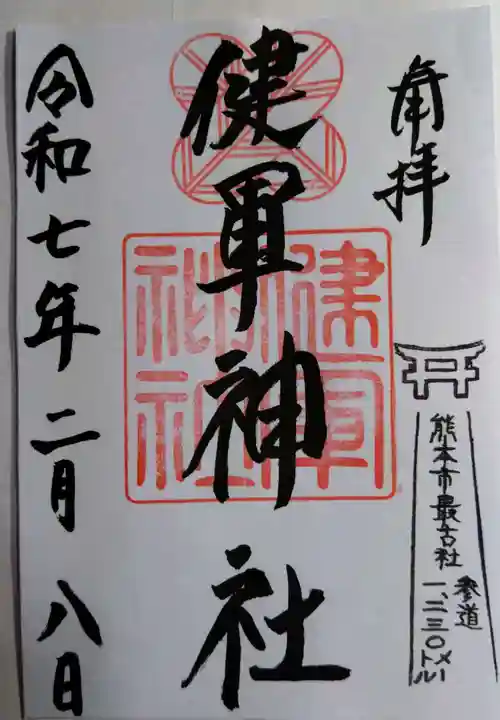 奉拝
健軍神社
令和七年二月八日
健軍
神社
熊本市最古社
参道
一、二三〇メートル